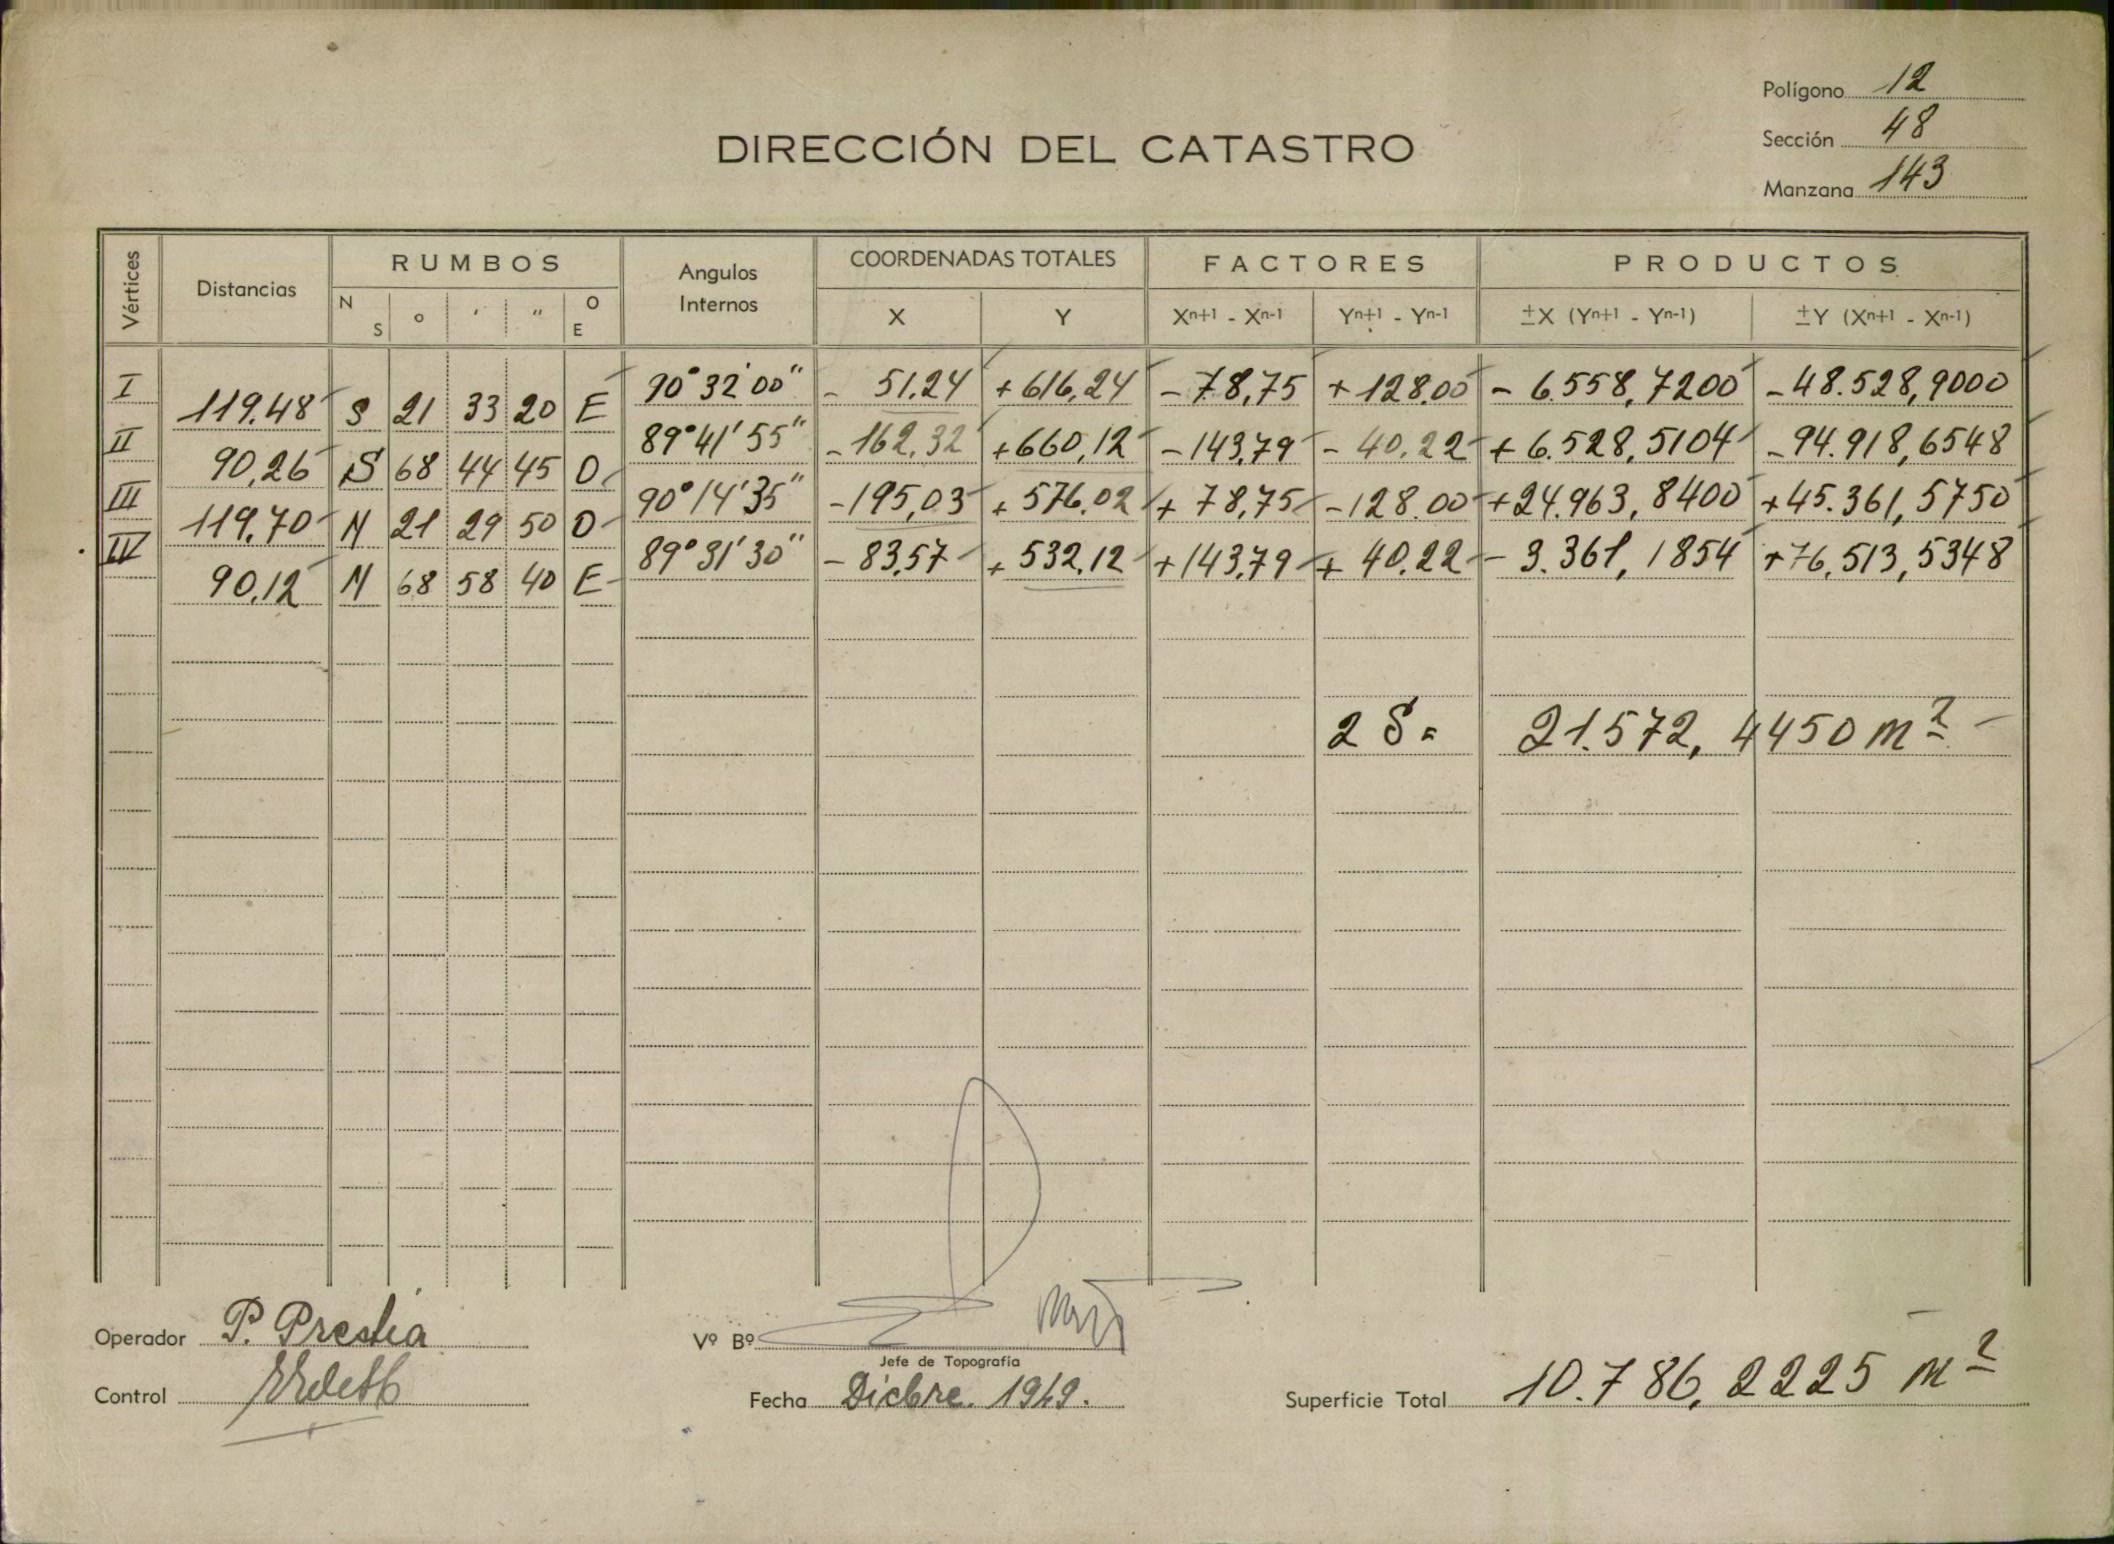 Polígono 12
Sección 48
Manzana 143
DIRECCIÓN DEL CATASTRO
Vértices Distancias RUMBOS Angulos Internos COORDENADAS TOTALES FACTORES PRODUCTOS
N S o ′ ″ O E X Y Xⁿ⁺¹ - Xⁿ⁻¹ Yⁿ⁺¹ - Yⁿ⁻¹ ±X (Yⁿ⁺¹ - Yⁿ⁻¹) ±Y (Xⁿ⁺¹ - Xⁿ⁻¹)
I 90° 32′ 00″ - 51,24 +616,24 -78,75 +128.00 - 6.558,7200 -48.528,9000
119.48 S 21 33 20 E
II 89° 41′ 55″ -162,32 +660,12 -143,79 - 40,22 + 6.528,5104 -94.918,6548
90,26 S 68 44 45 O
III 90° 14′ 35″ -195,03 + 576.02 + 78,75 -128.00 +24.963,8400 +45.361,5750
119,70 N 21 29 50 O
IV 89° 31′ 30″ - 83,57 + 532,12 +143,79 + 40,22 - 3.361,1854 +76,513,5348
90,12 N 68 58 40 E
2 S = 21.572,4450 m²
Operador P. Prestia
Vº Bº
Jefe de Topografía
Control
Fecha Dicbre. 1949.
Superficie Total 10.786,2225 m²